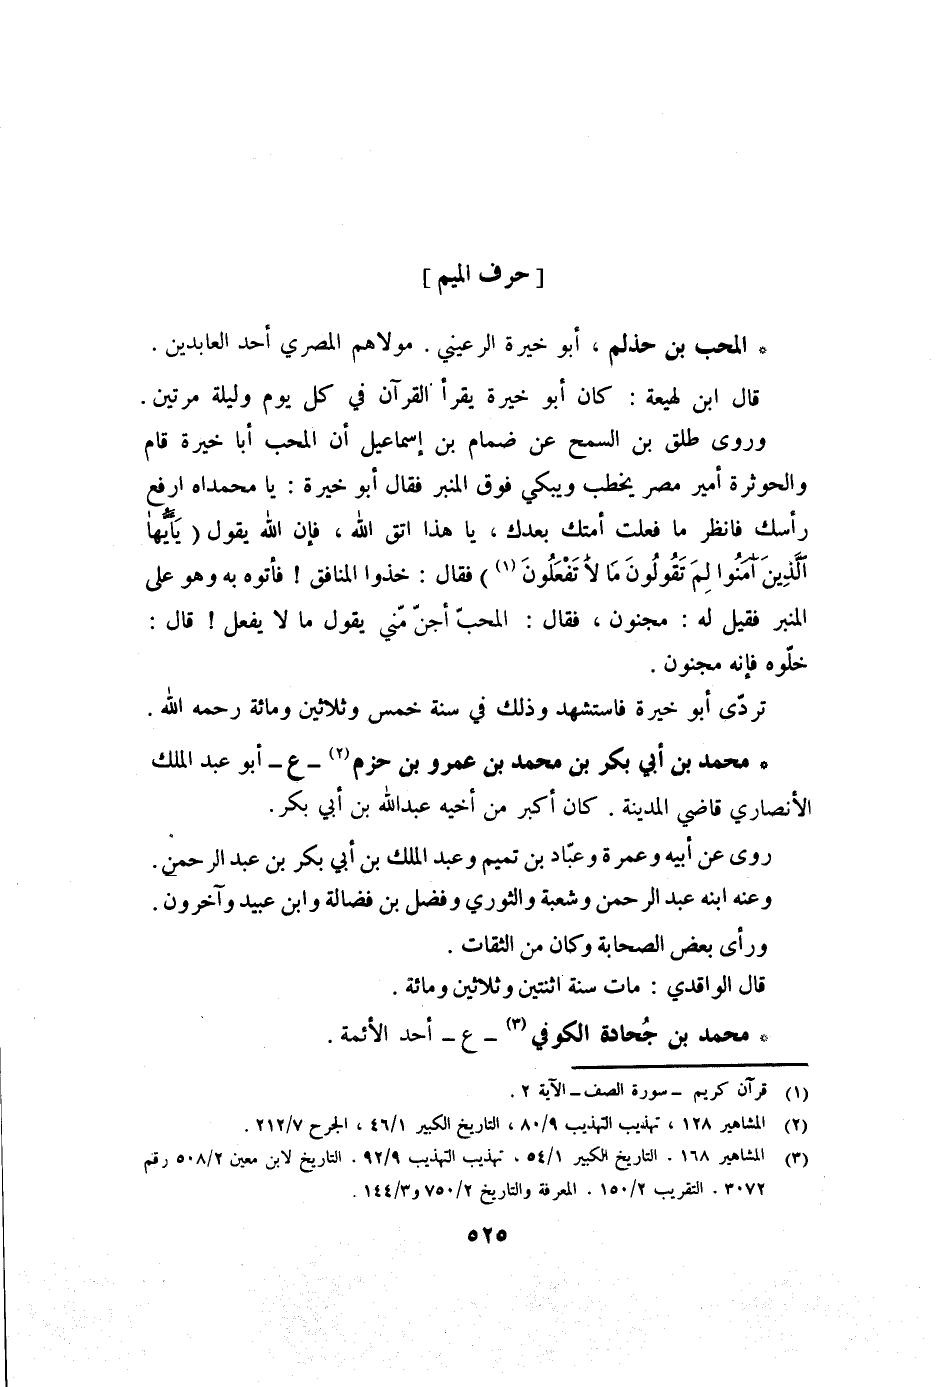 [ حرف الميم ]
* المحب بن حذلم ، أبو خيرة الرعيني . مولاهم المصري أحد العابدين .
قال ابن لهيعة : كان أبو خيرة يقرأ القرآن في كل يوم وليلة مرتين .
وروى طلق بن السمح عن ضمام بن إسماعيل أن المحب أبا خيرة قام
والحوثرة أمير مصر يخطب ويبكي فوق المنبر فقال أبو خيرة : يا محمداه ارفع
رأسك فانظر ما فعلت أمتك بعدك ، يا هذا اتق الله ، فإن الله يقول ( يَٰٓأَيُّهَا
ٱلَّذِينَ آمَنُوا لِمَ تَقُولُونَ مَا لَا تَفْعَلُونَ (١) ) فقال : خذوا المنافق ! فأتوه به وهو على
المنبر فقيل له : مجنون ، فقال : المحبّ أجنّ منّي يقول ما لا يفعل ! قال :
خلّوه فإنه مجنون .
تردّى أبو خيرة فاستشهد وذلك في سنة خمس وثلاثين ومائة رحمه الله .
* محمد بن أبي بكر بن محمد بن عمرو بن حزم (٢) ــ ع ــ أبو عبد الملك
الأنصاري قاضي المدينة . كان أكبر من أخيه عبدالله بن أبي بكر .
روى عن أبيه وعمرة وعبّاد بن تميم وعبد الملك بن أبي بكر بن عبد الرحمن .
وعنه ابنه عبد الرحمن وشعبة والثوري وفضل بن فضالة وابن عبيد وآخرون .
ورأى بعض الصحابة وكان من الثقات .
قال الواقدي : مات سنة اثنتين وثلاثين ومائة .
* محمد بن جُحادة الكوفي (٣) ــ ع ــ أحد الأئمة .
(١) قرآن كريم ــ سورة الصف ــ الآية ٢ .
(٢) المشاهير ١٢٨ ، تهذيب التهذيب ٨٠/٩ ، التاريخ الكبير ٤٦/١ ، الجرح ٢١٢/٧ .
(٣) المشاهير ١٦٨ . التاريخ الكبير ٥٤/١ . تهذيب التهذيب ٩٢/٩ . التاريخ لابن معين ٥٠٨/٢ رقم
٣٠٧٢ . التقريب ١٥٠/٢ . المعرفة والتاريخ ٧٥٠/٢ و١٤٤/٣ .
٥٢٥